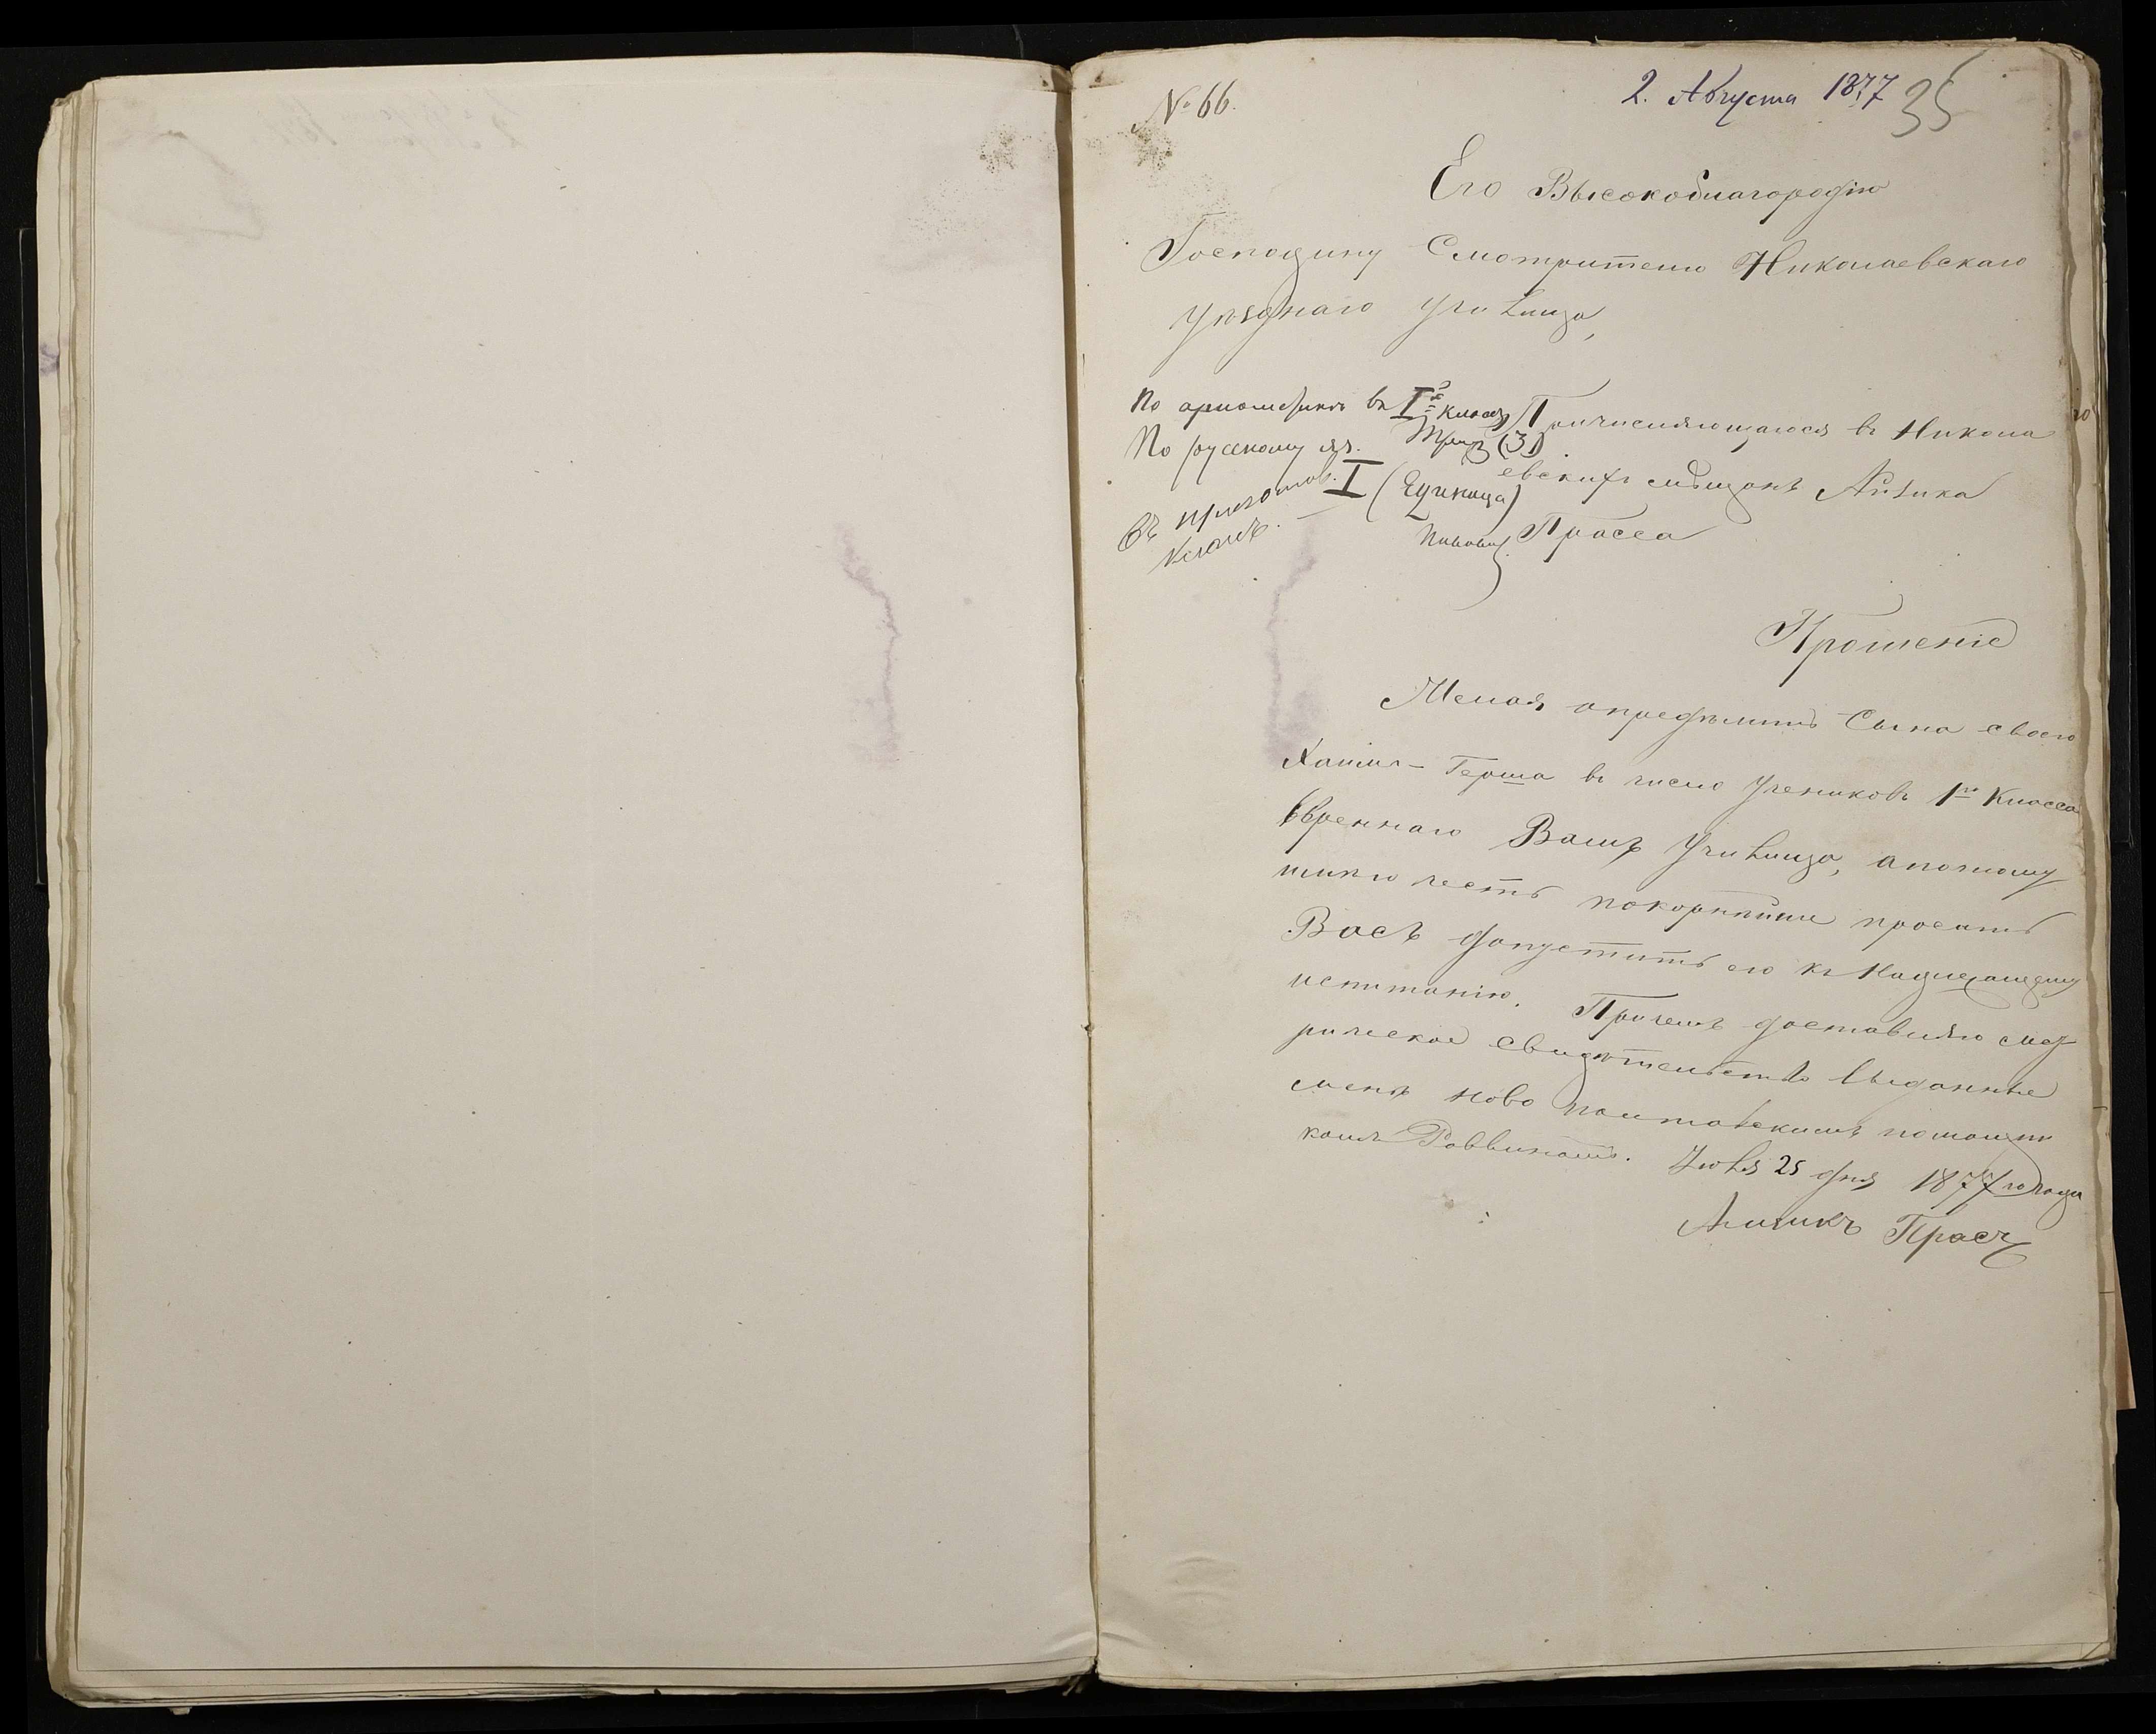 № 66.
2. Августа 1877
35
Его Высокоблагородію
Господину Смотрителю Николаевскаго
Уѣзднаго Училища,
По ариѳметикѣ въ I й классъ
По русскому яз. Три (3)
въ приготов. I (Единица)
классъ.
Причисляющагося въ Никола
евскихъ мѣщанъ Айзика
Прасса
Прошеніе
Желая опредѣлить Сына своего
Хаимъ-Герша въ число Учениковъ 1го Класса
ввѣреннаго Вамъ Училища, апотому
имѣю честь покорнѣйше просить
Васъ допустить его къ Надлежащему
испитанію. Причемъ доставляю мет
рическое свидѣтельство выданные
менѣ ново полтавскимъ помощни
комъ Раввиномъ. Іюля 25 дня 1877 го года
Айзикъ Прасъ